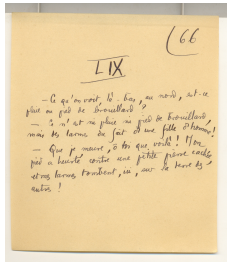 66
LIX
— Ce qu'on voit, là-bas, au nord, est-ce
pluie ou pied de brouillard ?
— Ce n'est ni pluie ni pied de brouillard,
mais des larmes d'une fille d'honneur !
— Que je meure, ô toi que voilà ! Mon
pied a heurté contre une petite pierre cachée
et mes larmes tombent, ici, sur la terre des
autres !